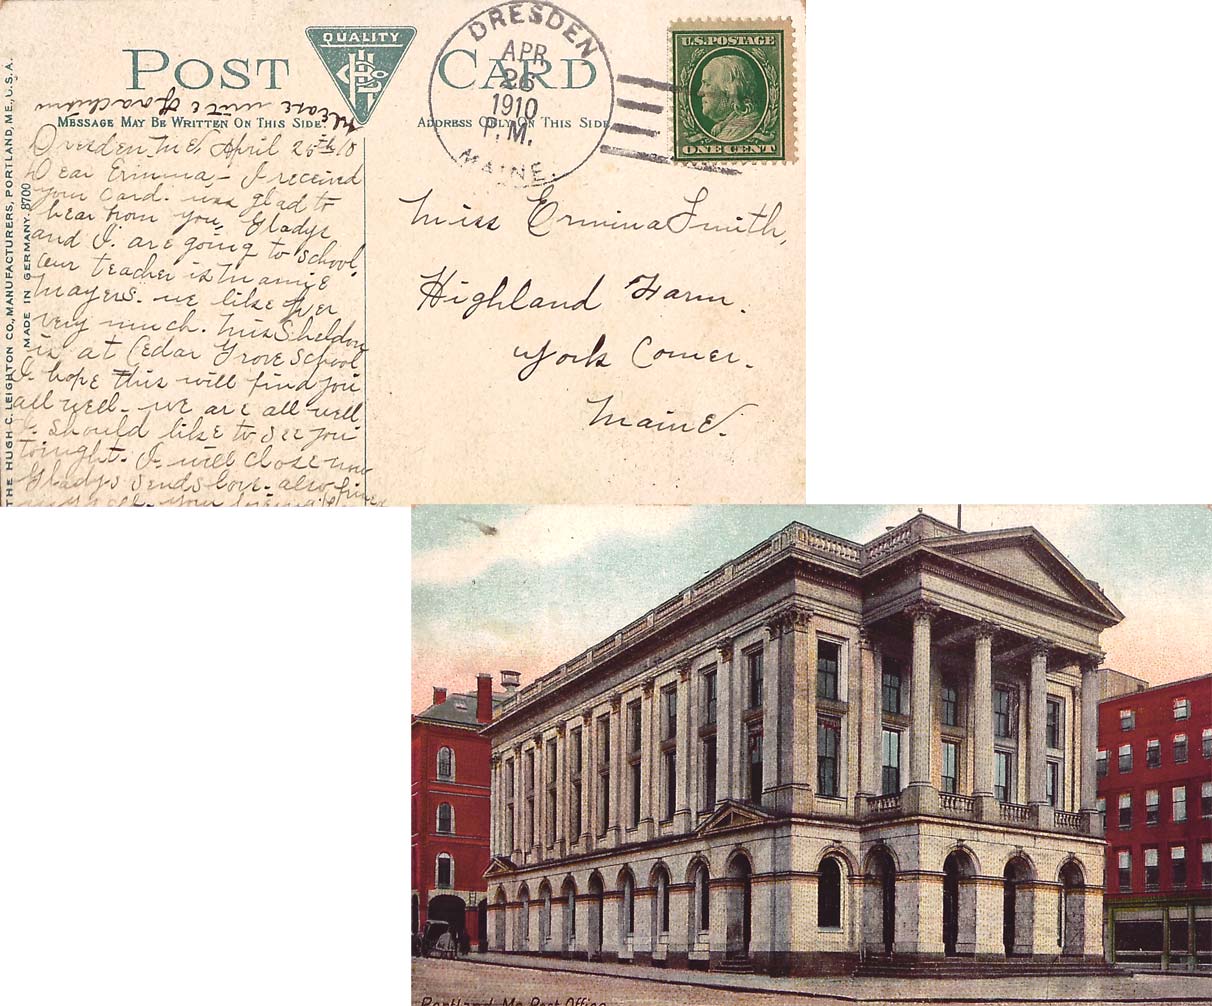 POST CARD
QUALITY
MESSAGE MAY BE WRITTEN ON THIS SIDE.
ADDRESS ONLY ON THIS SIDE
DRESDEN
APR
26
1910
P.M.
MAINE.
U.S. POSTAGE
ONE CENT
THE HUGH C. LEIGHTON CO., MANUFACTURERS, PORTLAND, ME., U.S.A.
MADE IN GERMANY. 8700
Please write
Dresden, Me, April 26th 10
Dear Ermina, - I received
your Card. was glad to
hear from you, Gladys
and I. are going to school,
our teacher is Mamie
Mayers. we like her
very much. Miss Sheldon
is at Cedar Grove School
I hope this will find you
all well - we are all well
I. should like to see you
tonight. I. will close now
Gladys sends love. also
Miss Ermina Smith,
Highland Farm.
York Corner.
Maine.
Portland, Me. Post Office